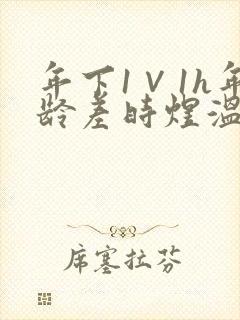 年下1V1h年
龄差时煌温
席塞拉芬